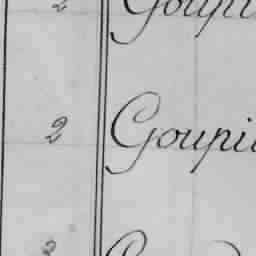 2 Goupi
2 Goupi
2